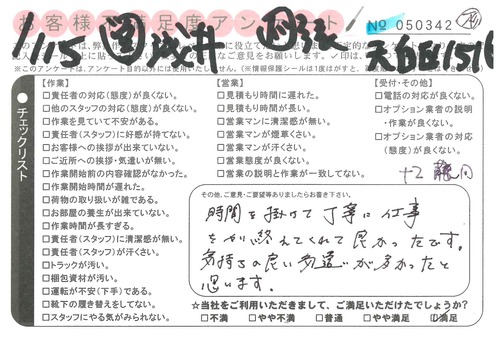 お客様満足度アンケート
№ 050342
1/15
※このアンケートは、アンケート目的以外には使用いたしません。(※情報保護シールは1度はがすと、
チェックリスト
【作業】
□責任者の対応(態度)が良くない。
□他のスタッフの対応(態度)が良くない。
□作業を見ていて不安がある。
□責任者(スタッフ)に好感が持てない。
□お客様への挨拶が出来ていない。
□ご近所への挨拶・気遣いが無い。
□作業開始前の内容確認がなかった。
□作業開始時間が遅れた。
□荷物の取り扱いが雑である。
□お部屋の養生が出来ていない。
□作業時間が長すぎる。
□責任者(スタッフ)に清潔感が無い。
□責任者(スタッフ)が汗くさい。
□トラックが汚い。
□梱包資材が汚い。
□運転が不安(下手)である。
□靴下の履き替えをしてない。
□スタッフにやる気がみられない。
【営業】
□見積もり時間に遅れた。
□見積もり時間が長い。
□営業マンに清潔感が無い。
□営業マンが煙草くさい。
□営業マンが汗くさい。
□営業態度が良くない。
□営業の説明と作業が一致してない。
【受付・その他】
□電話の対応が良くない。
□オプション業者の説明
・作業が良くない。
□オプション業者の対応
(態度)が良くない。
その他、ご意見・ご要望等ありましたらお書き下さい。
時間を掛けて丁寧に仕事
をやり終えてくれて良かったです。
気持ちの良い気遣いが多かったと
思います。
☆当社をご利用いただきまして、ご満足いただけたでしょうか?
□不満 □やや不満 □普通 □やや満足 □満足